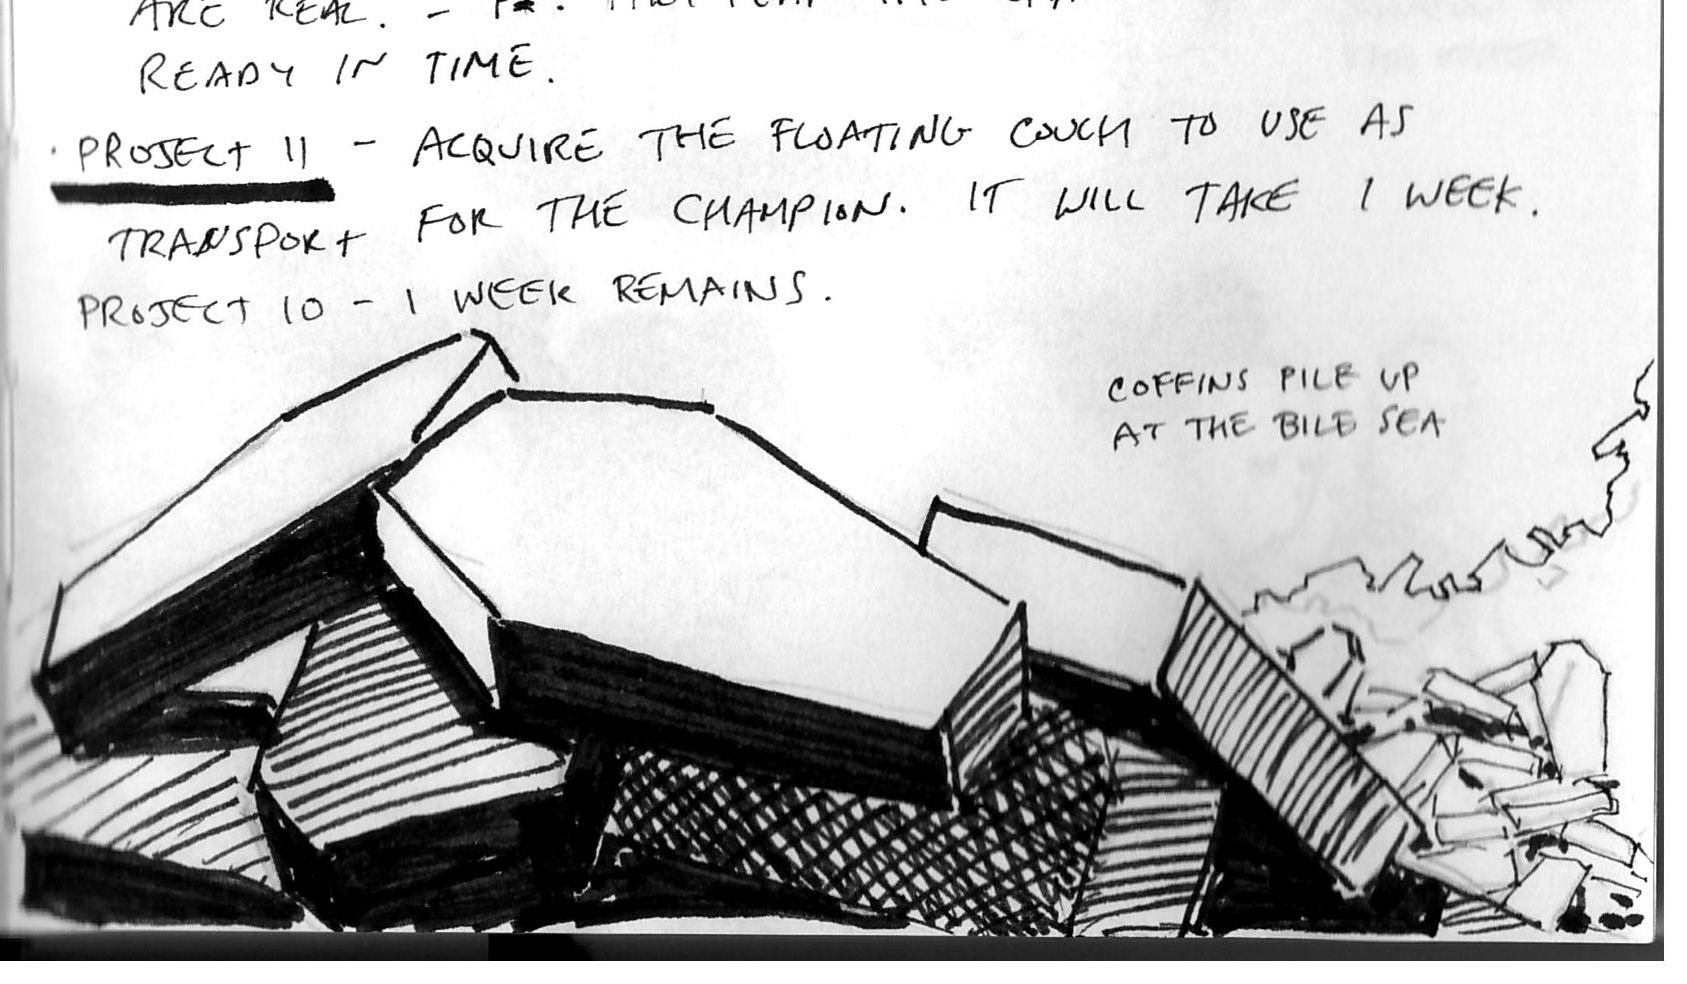 ARE REAL. -
READY IN TIME.
PROJECT 11 - ACQUIRE THE FLOATING COUCH TO USE AS
TRANSPORT FOR THE CHAMPION. IT WILL TAKE 1 WEEK.
PROJECT 10 - 1 WEEK REMAINS.
COFFINS PILE UP
AT THE BILE SEA